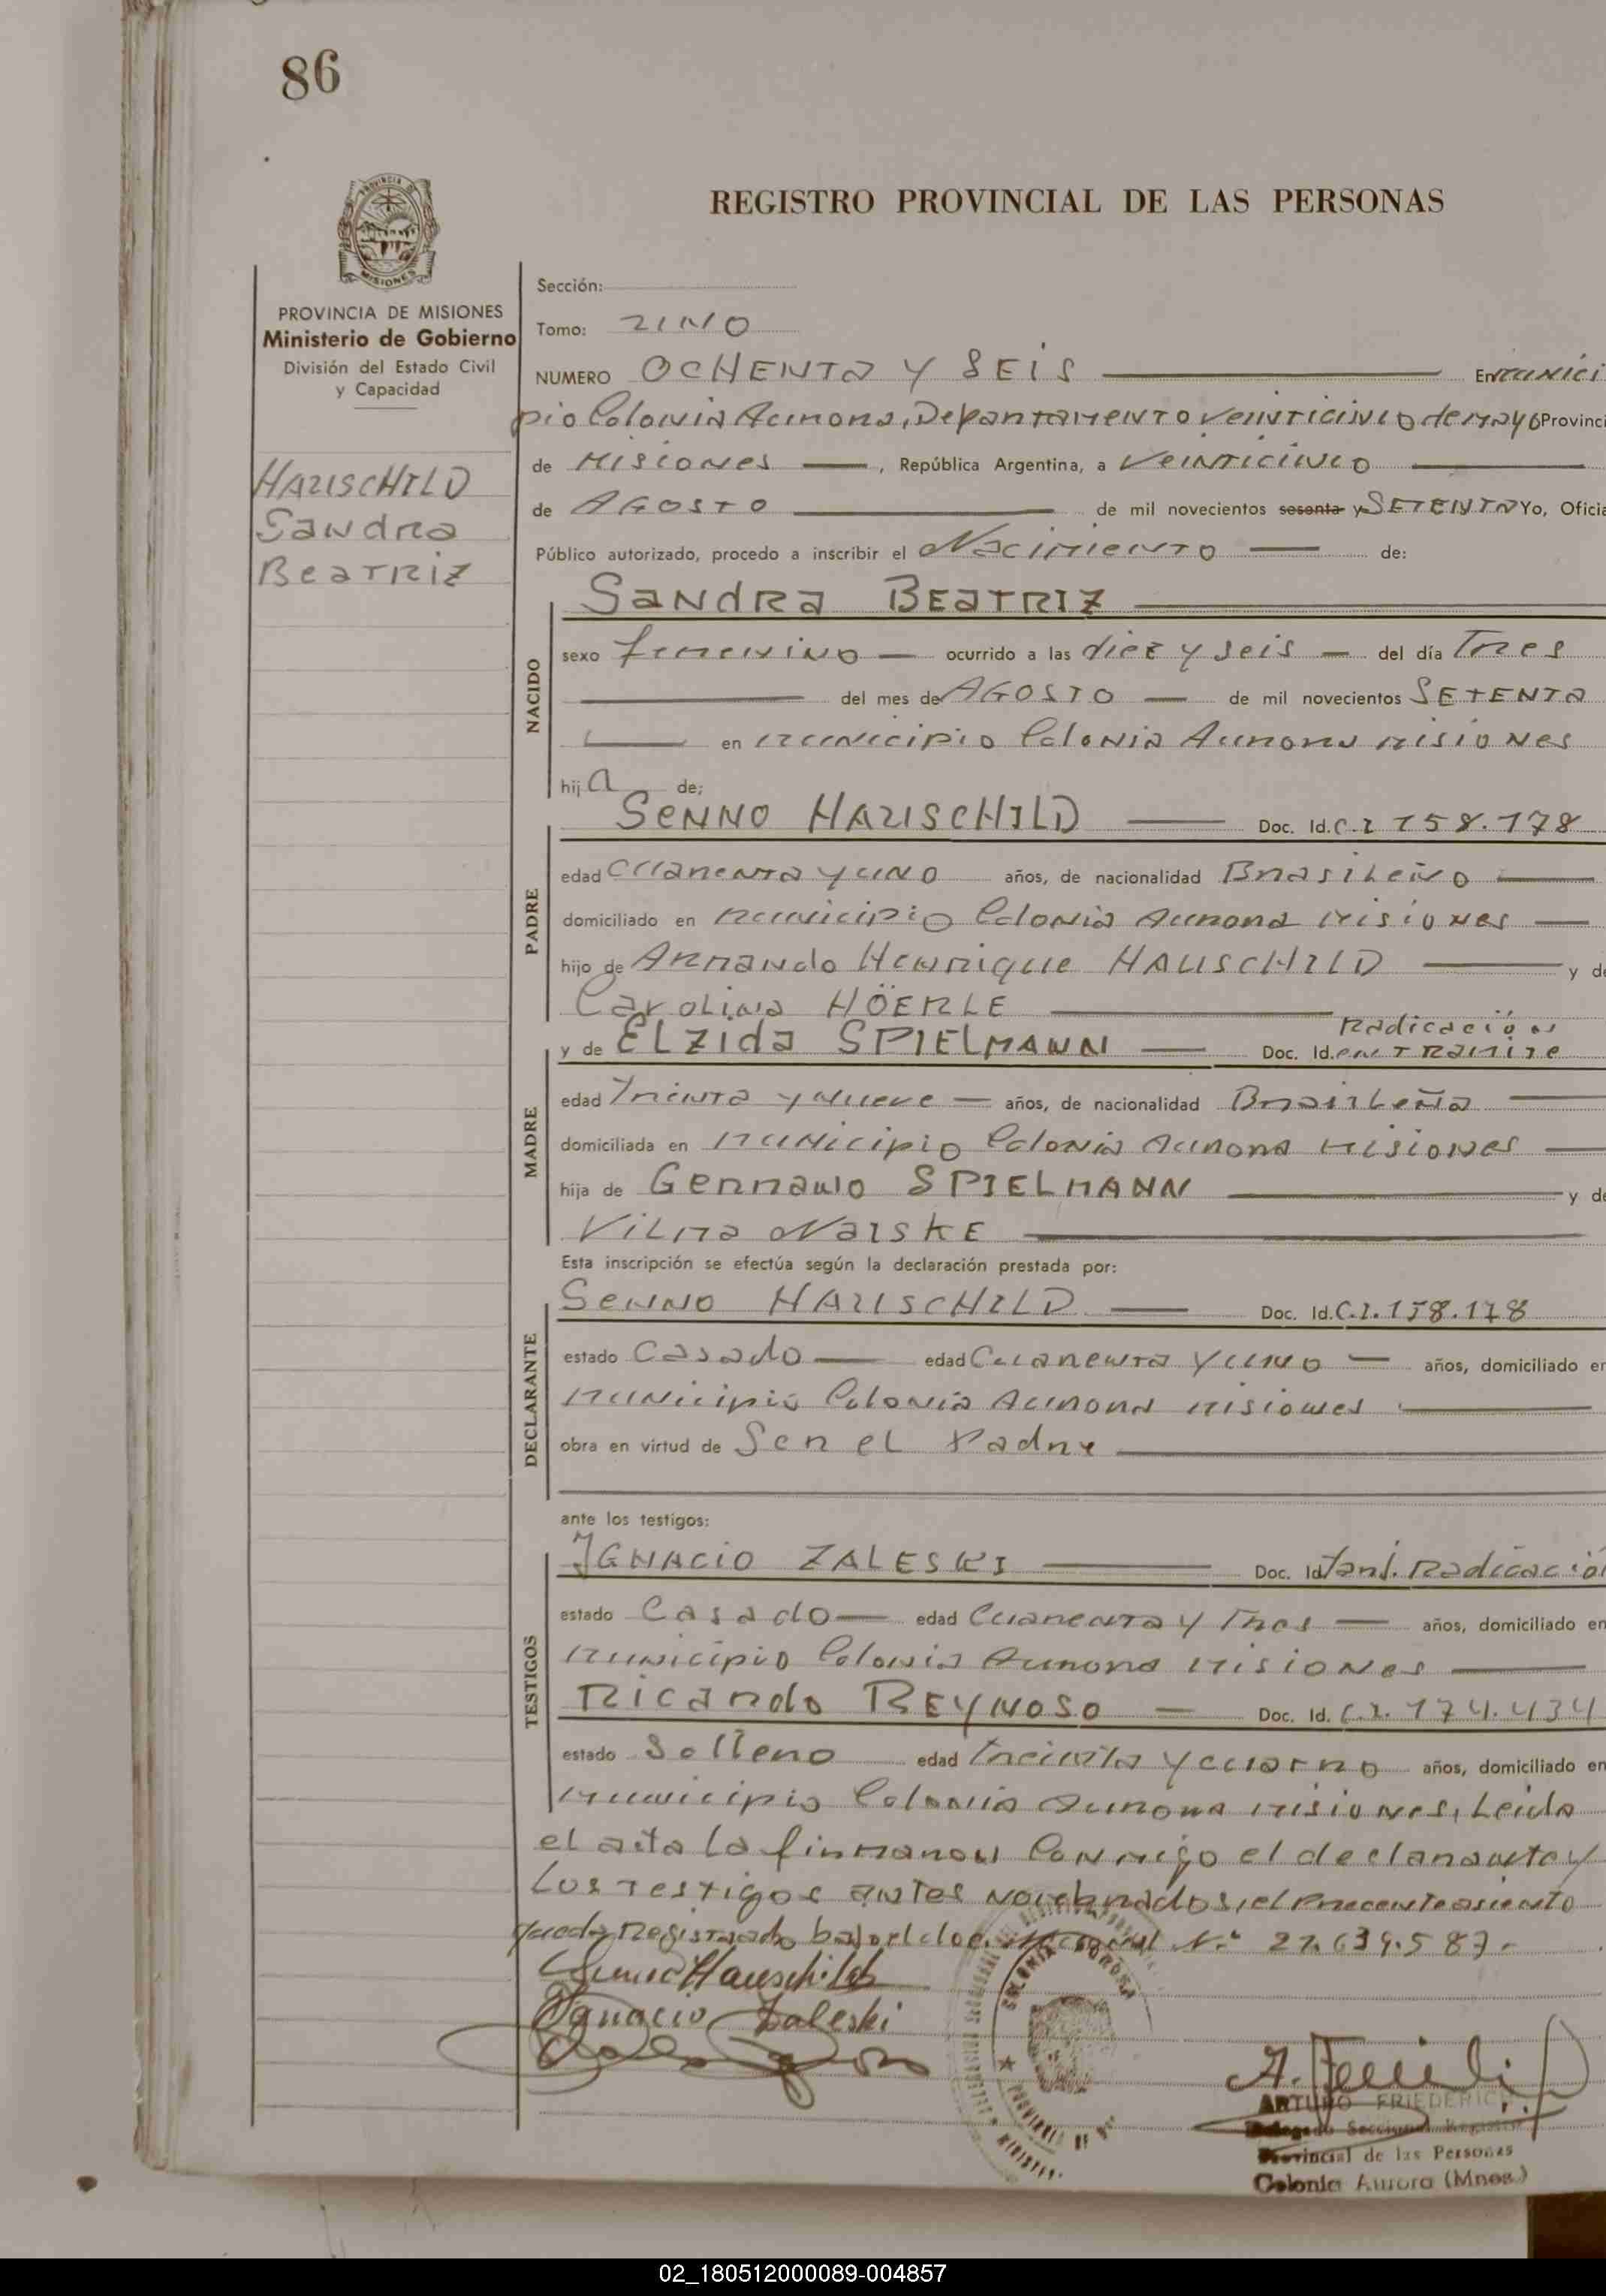 86
REGISTRO PROVINCIAL DE LAS PERSONAS
PROVINCIA DE MISIONES
Ministerio de Gobierno
División del Estado Civil
y Capacidad
HAUSCHILD
Sandra
Beatriz
Sección:
Tomo: UNO
NUMERO OCHENTA Y SEIS En Munici
pio Colonia Aurora, Departamento Veinticinco de Mayo Provinci
de Misiones, República Argentina, a Veinticinco
de AGOSTO de mil novecientos sesenta y SETENTA Yo, Oficia
Público autorizado, procedo a inscribir el Nacimiento de:
SANDRA BEATRIZ
NACIDO
sexo femenino ocurrido a las diez y seis del día Tres
del mes de AGOSTO de mil novecientos SETENTA
en Municipio Colonia Aurora Misiones
hija de;
PADRE
SENNO HAUSCHILD Doc. Id. C.I 158.178
edad Cuarenta y uno años, de nacionalidad Brasileño
domiciliado en Municipio Colonia Aurora Misiones
hijo de Armando Henrique HAUSCHILD y de
Carolina HÖERLE
MADRE
Radicación
y de ELZIDA SPIELMANN Doc. Id. en Tramite
edad Treinta y nueve años, de nacionalidad Brasileña
domiciliada en Municipio Colonia Aurora Misiones
hija de Germano SPIELMANN y de
Vilma
Esta inscripción se efectúa según la declaración prestada por:
DECLARANTE
SENNO HAUSCHILD Doc. Id. C.I. 158.178
estado Casado edad Cuarenta y uno años, domiciliado en
Municipio Colonia Aurora Misiones
obra en virtud de Ser el Padre
ante los testigos:
TESTIGOS
IGNACIO ZALESKI Doc. Id. Radicació
estado Casado edad Cuarenta y Tres años, domiciliado en
Municipio Colonia Aurora Misiones
Ricardo REYNOSO Doc. Id. C.I. 174.434
estado Soltero edad Treinta y cuatro años, domiciliado en
Municipio Colonia Aurora Misiones, Leida
el acta la firmaron Conmigo el declarante y
Los testigos antes nombrados, el Precente asiento
queda Registrado bajo el doc. Nacional N° 21.639.587.-
Senno Hauschild
Ignacio Zaleski
COLONIA AURORA
A. Friederich
ARTURO FRIEDERICH
Delegado Seccional Registro
Provincial de las Personas
Colonia Aurora (Mnes.)
02_180512000089-004857